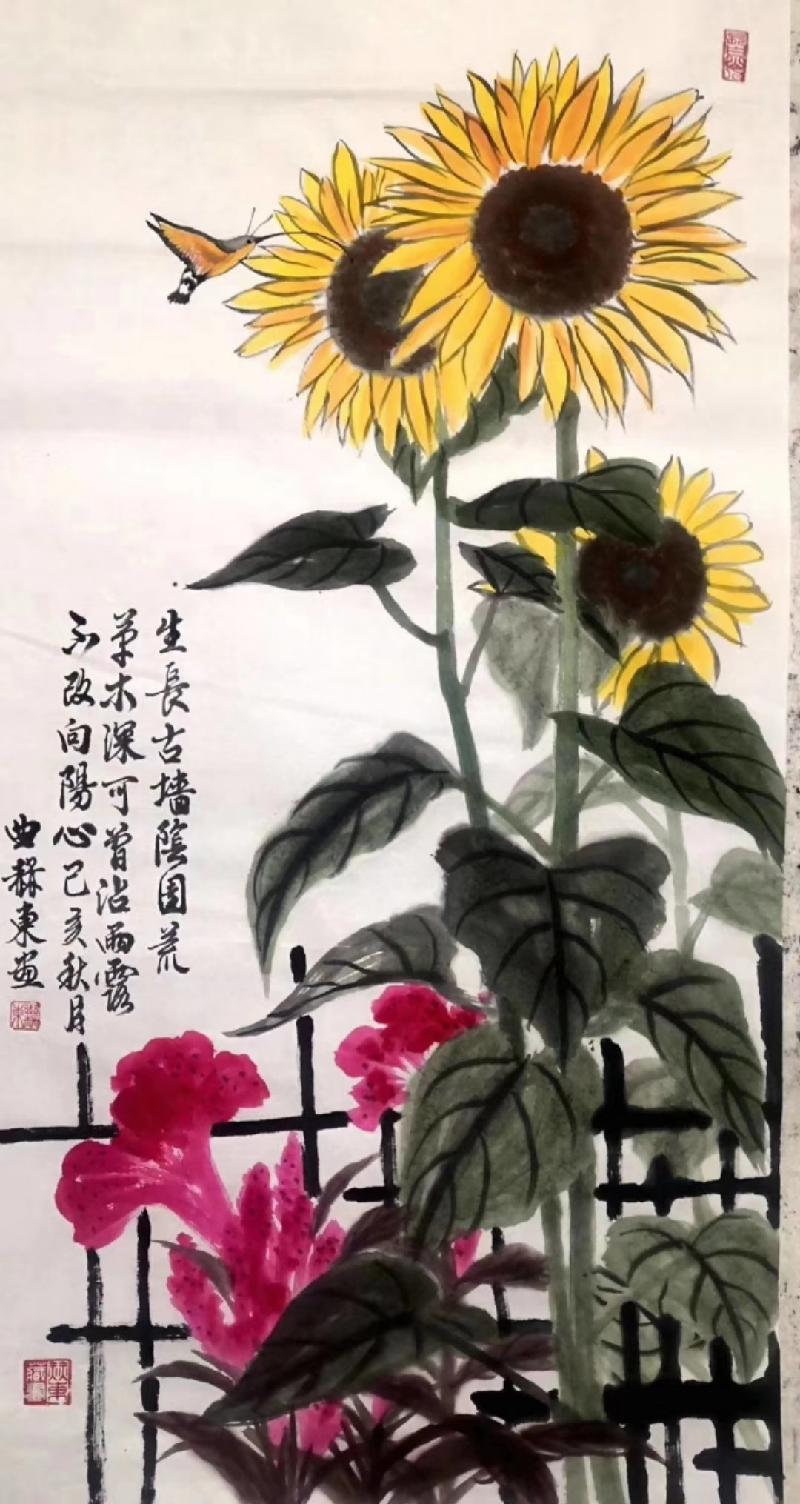 生長古墻蔭園荒
草木深可曾沾雨露
不改向陽心己亥秋月
曲稼東畫